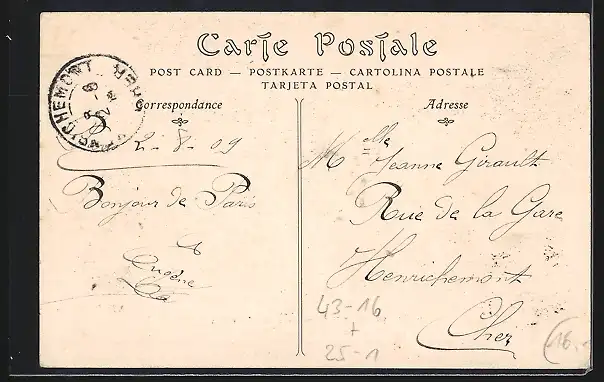 Carte Postale
POST CARD — POSTKARTE — CARTOLINA POSTALE
TARJETA POSTAL
Correspondance
Adresse
HENRICHEMONT CHER
2-8-09
Bonjour de Paris
Melle Jeanne Girault
Rue de la Gare
Henrichemont
Cher
43-16
+
25-1
16.-